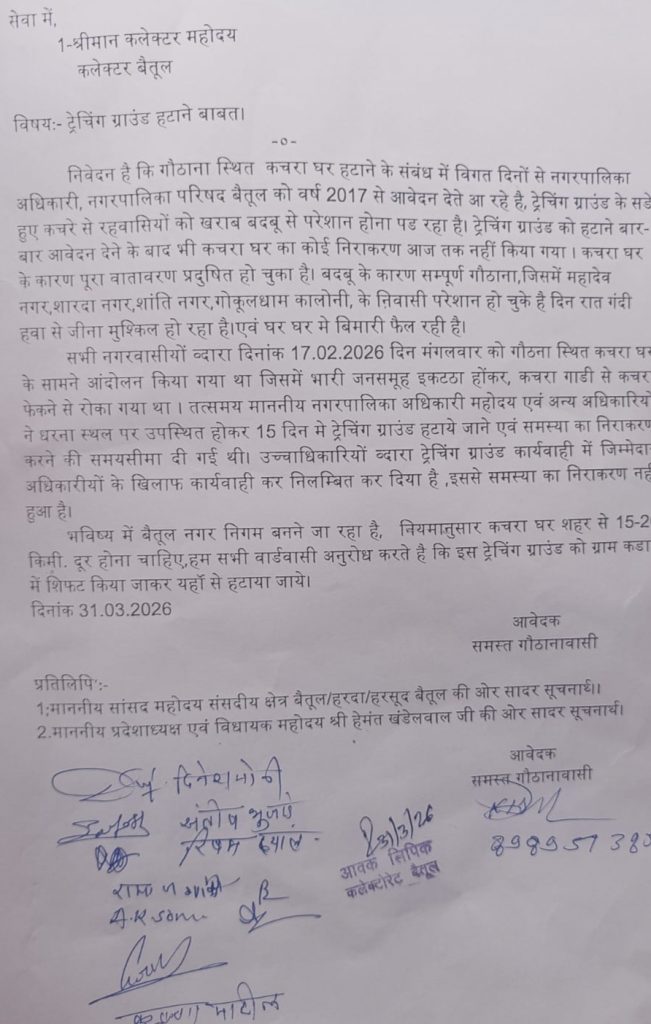 सेवा में,
1-श्रीमान कलेक्टर महोदय
कलेक्टर बैतूल
विषय:- ट्रेचिंग ग्राउंड हटाने बाबत।
-०-
निवेदन है कि गौठाना स्थित कचरा घर हटाने के संबंध में विगत दिनों से नगरपालिका
अधिकारी, नगरपालिका परिषद बैतूल को वर्ष 2017 से आवेदन देते आ रहे है, ट्रेचिंग ग्राउंड के सडे
हुए कचरे से रहवासियों को खराब बदबू से परेशान होना पड रहा है। ट्रेचिंग ग्राउंड को हटाने बार-
बार आवेदन देने के बाद भी कचरा घर का कोई निराकरण आज तक नहीं किया गया । कचरा घर
के कारण पूरा वातावरण प्रदुषित हो चुका है। बदबू के कारण सम्पूर्ण गौठाना,जिसमें महादेव
नगर,शारदा नगर,शांति नगर,गोकूलधाम कालोनी, के निवासी परेशान हो चुके है दिन रात गंदी
हवा से जीना मुश्किल हो रहा है।एवं घर घर मे बिमारी फैल रही है।
सभी नगरवासीयों व्दारा दिनांक 17.02.2026 दिन मंगलवार को गौठना स्थित कचरा घर
के सामने आंदोलन किया गया था जिसमें भारी जनसमूह इकटठा होंकर, कचरा गाडी से कचरा
फेकने से रोका गया था । तत्समय माननीय नगरपालिका अधिकारी महोदय एवं अन्य अधिकारियो
ने धरना स्थल पर उपस्थित होकर 15 दिन मे ट्रेचिंग ग्राउंड हटाये जाने एवं समस्या का निराकरण
करने की समयसीमा दी गई थी। उच्चाधिकारियों व्दारा ट्रेचिंग ग्राउंड कार्यवाही में जिम्मेदार
अधिकारीयों के खिलाफ कार्यवाही कर निलम्बित कर दिया है ,इससे समस्या का निराकरण नही
हुआ है।
भविष्य में बैतूल नगर निगम बनने जा रहा है, नियमानुसार कचरा घर शहर से 15-20
किमी. दूर होना चाहिए,हम सभी वार्डवासी अनुरोध करते है कि इस ट्रेचिंग ग्राउंड को ग्राम कडा
में शिफट किया जाकर यहॉ से हटाया जाये।
दिनांक 31.03.2026
आवेदक
समस्त गौठानावासी
प्रतिलिपि:-
1;माननीय सांसद महोदय संसदीय क्षेत्र बैतूल/हरदा/हरसूद बैतूल की ओर सादर सूचनार्थ।।
2.माननीय प्रदेशाध्यक्ष एवं विधायक महोदय श्री हेमंत खंडेलवाल जी की ओर सादर सूचनार्थ।
आवेदक
समस्त गौठानावासी
दिनेश मोकी
संतोष
रिषभ
31/3/26
आवक लिपिक
कलेक्टोरेट बैतूल
A.K Soni
पाटील